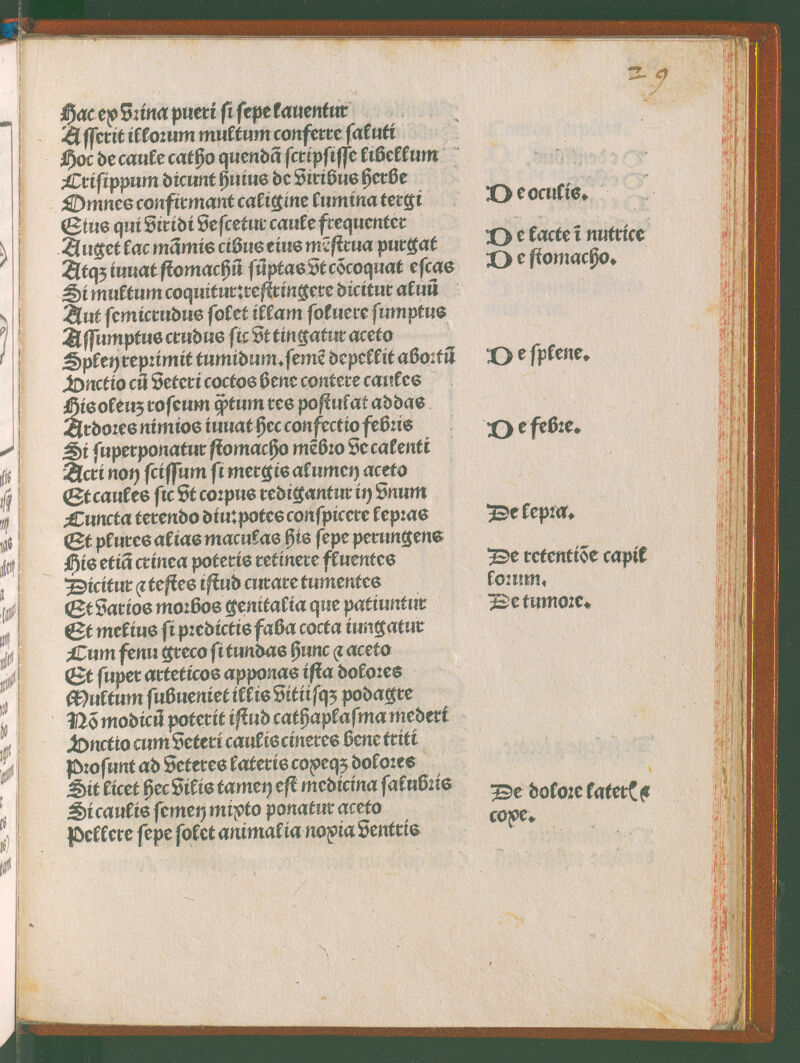 29
Hac ex vrina pueri si sepe lauentur
Asserit illorum multum conferre saluti
Hoc de caule catho quendã scripsisse libellum
Crisippum dicunt huius de viribus herbe
Omnes confirmant caligine lumina tergi
Eius qui viridi vescetur caule frequenter
Auget lac mãmis cibus eius mẽstrua purgat
Atqꝫ iuuat stomachũ sũptas vt cõcoquat escas
Si multum coquitur:restringere dicitur aluũ
Aut semicrudus solet illam soluere sumptus
Assumptus crudus sic vt tingatur aceto
Splen reprimit tumidum.semẽ depellit abortũ
Vnctio cũ veteri coctos bene contere caules
His oleuꝫ roseum q̃tum res postulat addas
Ardores nimios iuuat hec confectio febris
Si superponatur stomacho mẽbro ve calenti
Acri non scissum si mergis alumen aceto
Et caules sic vt corpus redigantur in vnum
Cuncta terendo diu:potes conspicere lepras
Et plures alias maculas his sepe perungens
His etiã crinea poteris retinere fluentes
Dicitur ⁊ testes istud curare tumentes
Et varios morbos genitalia que patiuntur
Et melius si predictis faba cocta iungatur
Cum fenu greco si tundas hunc ⁊ aceto
Et super arteticos apponas ista dolores
Multum subueniet illis vitiisqꝫ podagre
Nõ modicũ poterit istud cathaplasma mederi
Vnctio cum veteri caulis cineres bene triti
Prosunt ad veteres lateris coxeqꝫ dolores
Sit licet hec vilis tamen est medicina salubris
Si caulis semen mixto ponatur aceto
Pellere sepe solet animalia noxia ventris
De oculis.
De lacte ĩ nutrice
De stomacho.
De splene.
De febre.
De lepra.
De retentiõe capil
lorum.
De tumore.
De dolore laterꝭ ⁊
coxe.